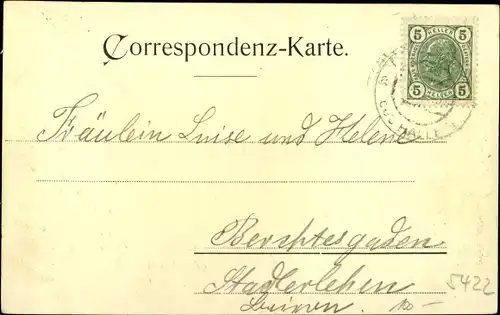 Correspondenz-Karte.
5 HELLER 5
5 HELLER 5
Fräulein Luise und Helene
Berchtesgaden
Stadlerlehen
5422